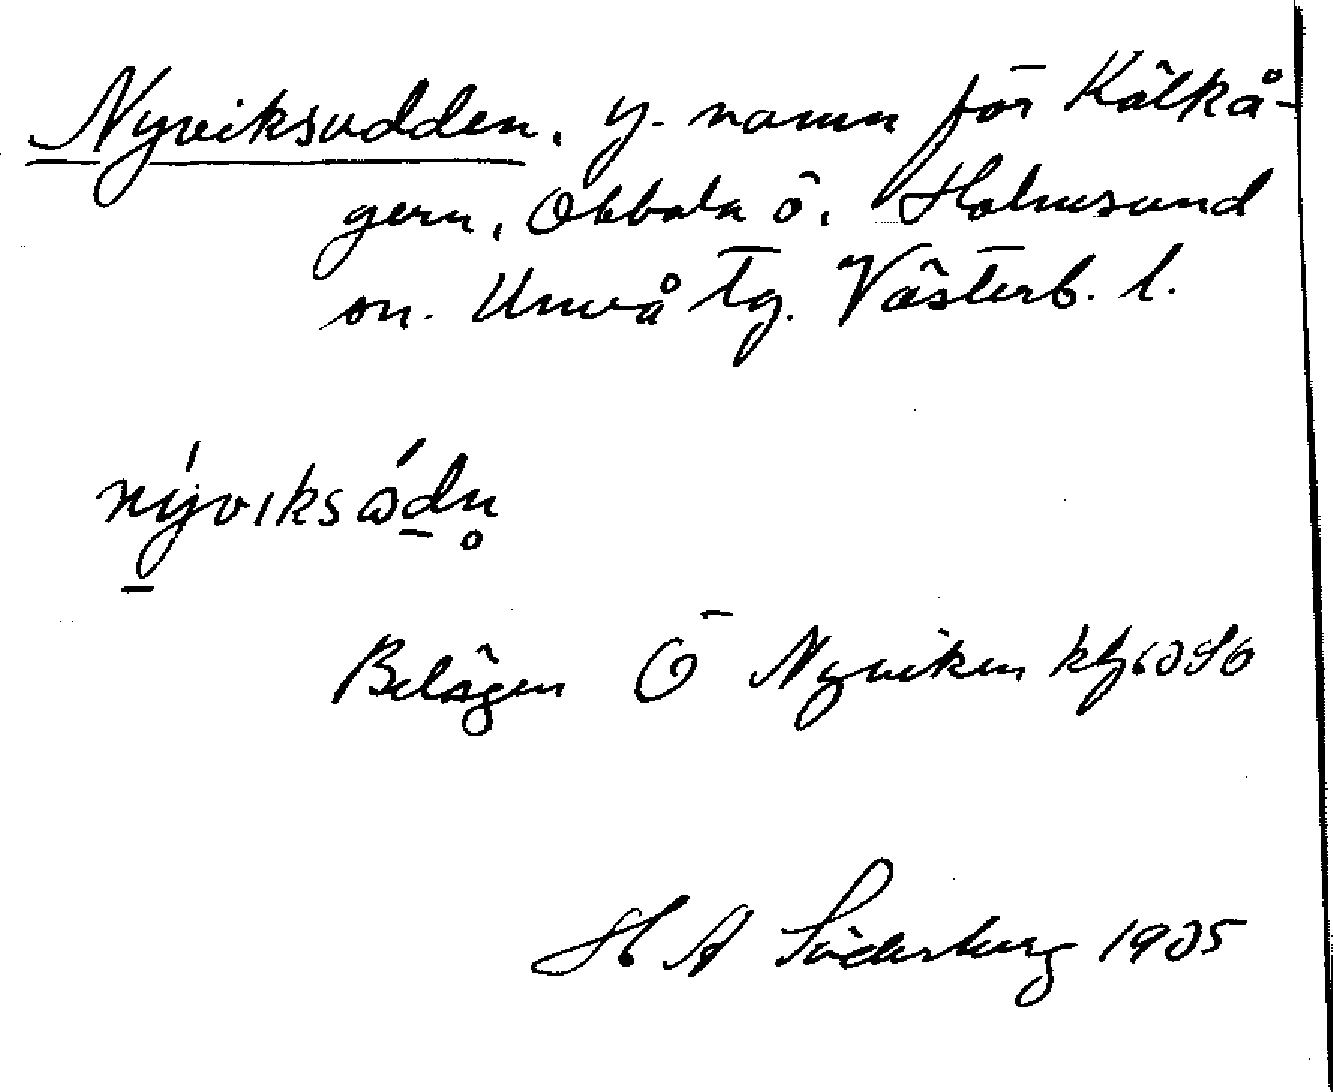 Nyviksudden. y. namn för Kälkå-
gern, Obbola ö. Holmsund
sn. Umeå Tg. Västerb. l.
nýviksódn
Belägen Ö Nyviken
H A Söderberg 1935